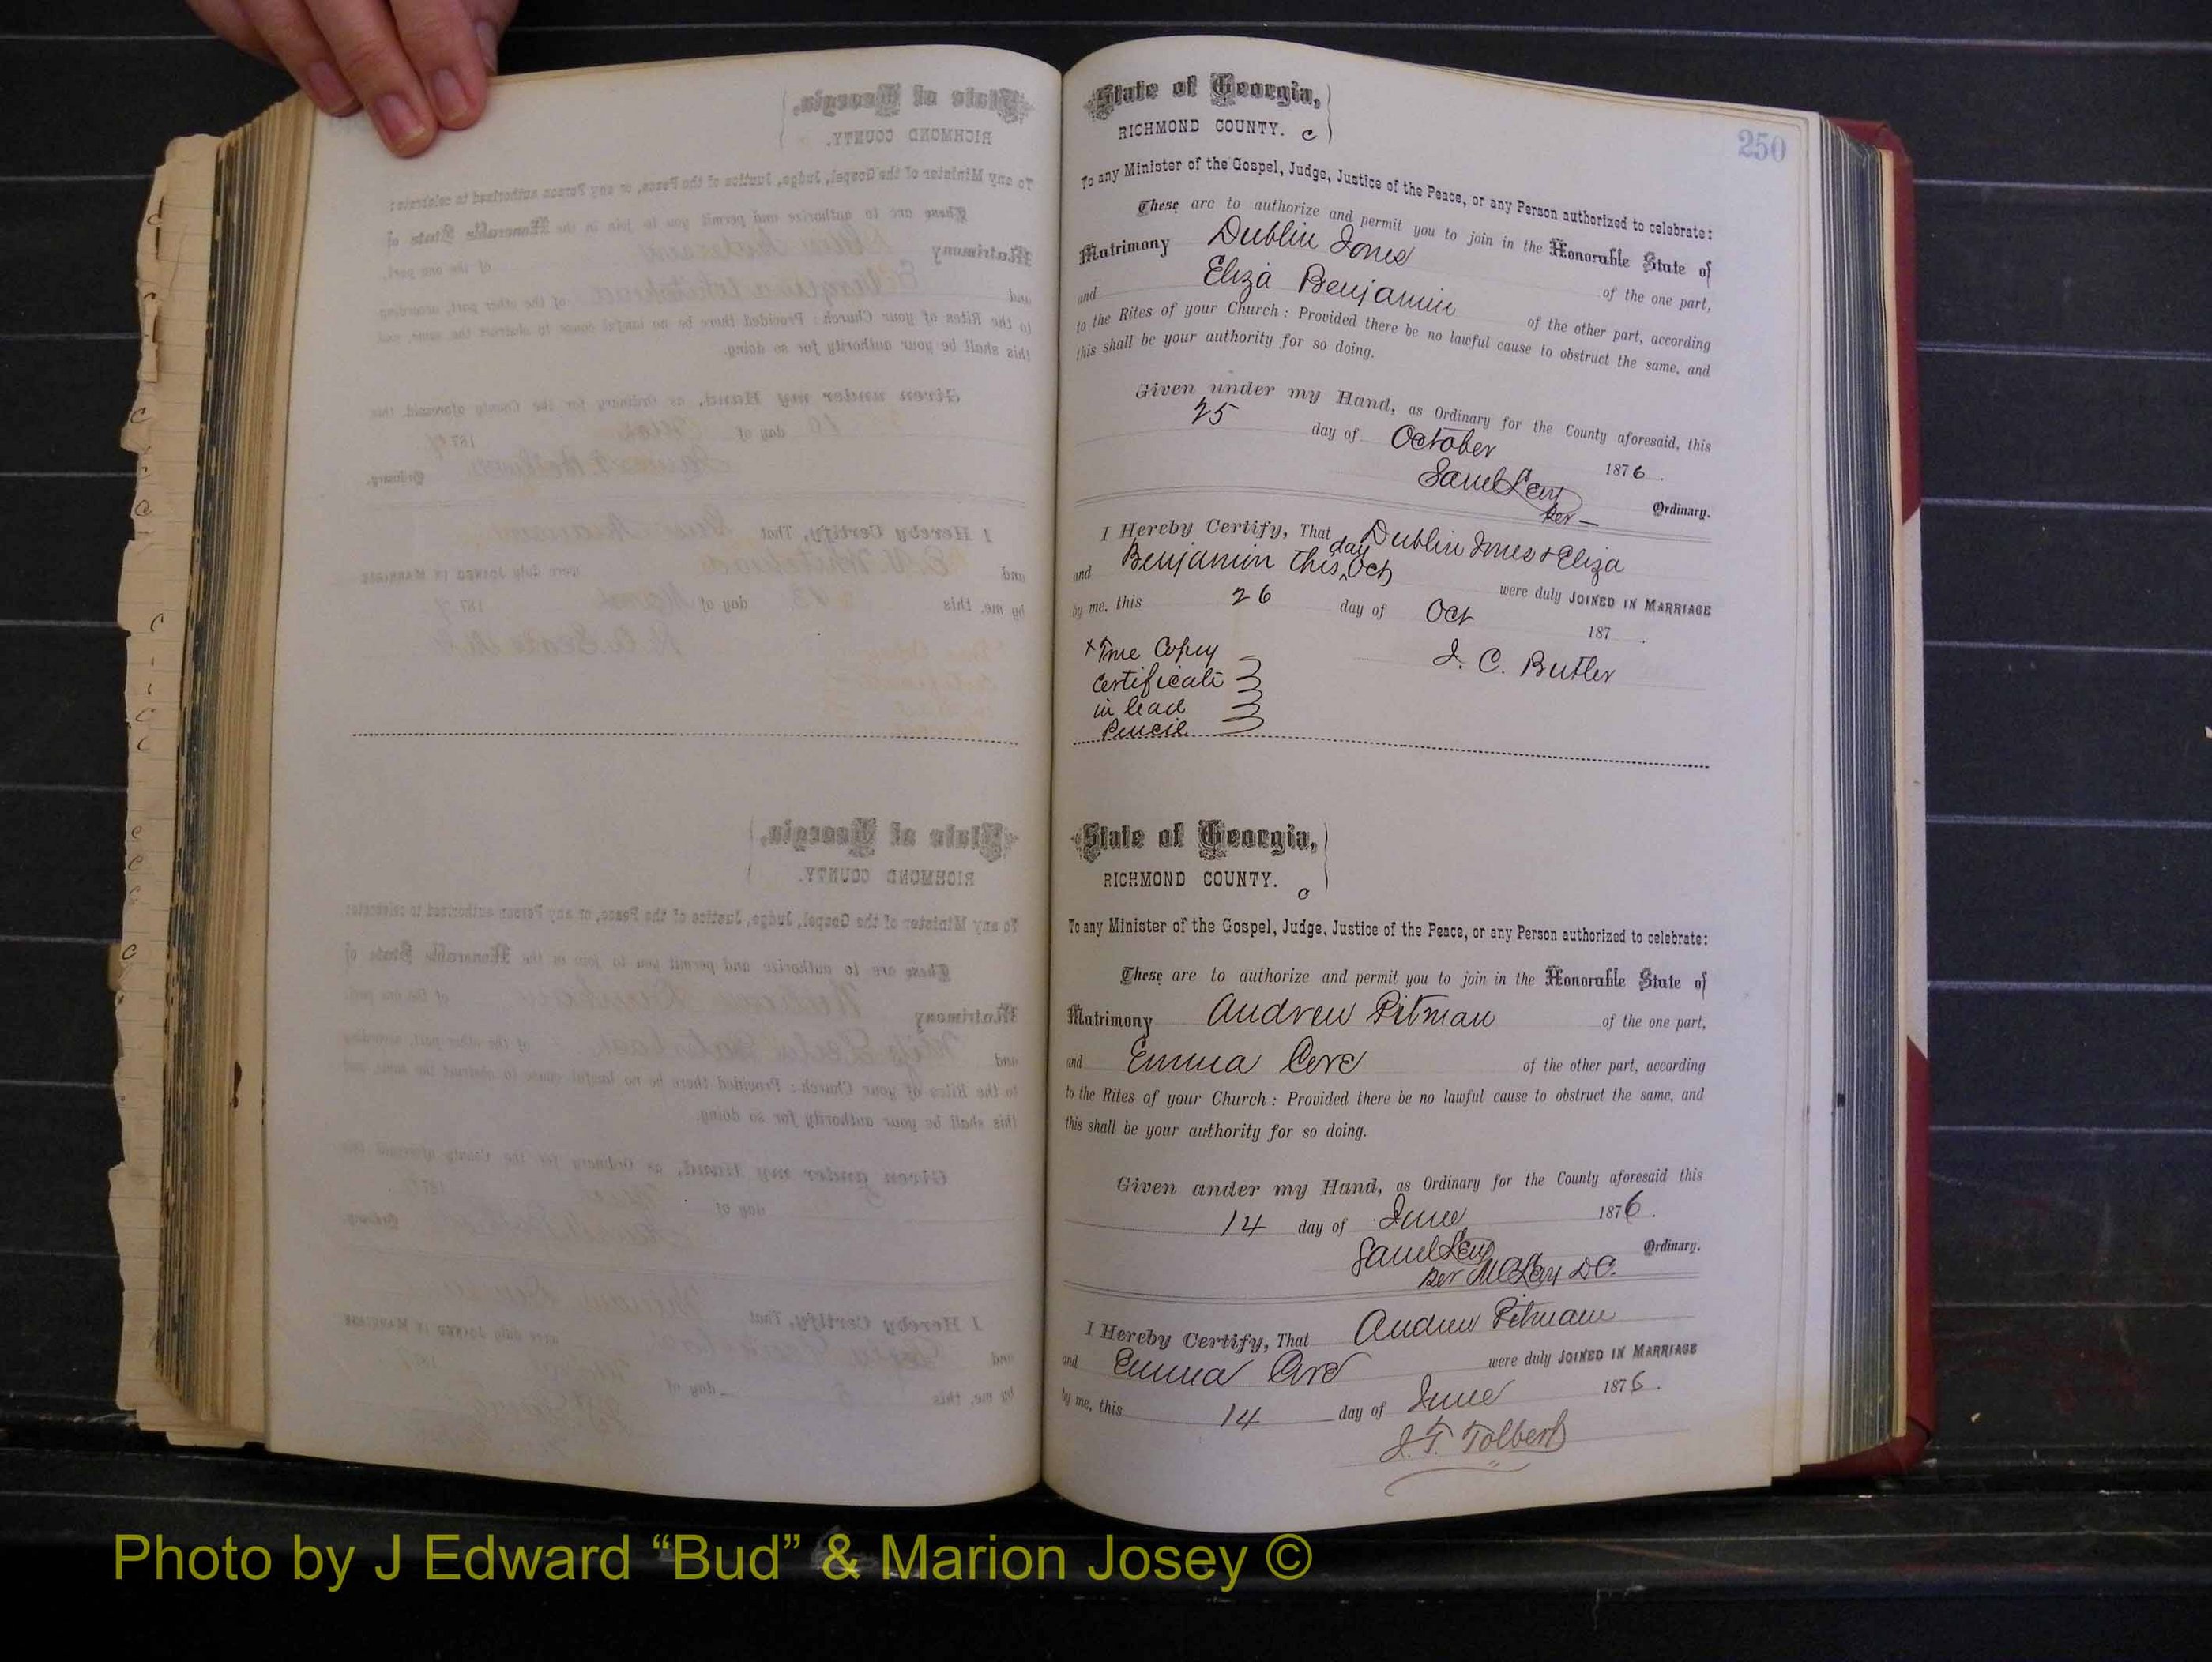 250
State of Georgia,
RICHMOND COUNTY. C
To any Minister of the Gospel, Judge, Justice of the Peace, or any Person authorized to celebrate:
These are to authorize and permit you to join in the Honorable State of
Matrimony Dublin Jones of the one part,
and Eliza Benjamin of the other part, according
to the Rites of your Church: Provided there be no lawful cause to obstruct the same, and
this shall be your authority for so doing.
Given under my Hand, as Ordinary for the County aforesaid, this
25 day of October 1876.
Saml Levy Ordinary.
Per —
I Hereby Certify, That Dublin Jones & Eliza
and Benjamin this day Oct were duly JOINED IN MARRIAGE
by me, this 26 day of Oct 187 .
J. C. Butler
x True Copy
Certificate
in lead
Pencil
State of Georgia,
RICHMOND COUNTY. C
To any Minister of the Gospel, Judge, Justice of the Peace, or any Person authorized to celebrate:
These are to authorize and permit you to join in the Honorable State of
Matrimony Andrew Pitman of the one part,
and Emma of the other part, according
to the Rites of your Church: Provided there be no lawful cause to obstruct the same, and
this shall be your authority for so doing.
Given under my Hand, as Ordinary for the County aforesaid this
14 day of June 1876.
Saml Levy Ordinary.
Per D.C.
I Hereby Certify, That Andrew Pitman
and Emma were duly JOINED IN MARRIAGE
by me, this 14 day of June 1876.
J. T. Tolbert
Photo by J Edward “Bud” & Marion Josey ©